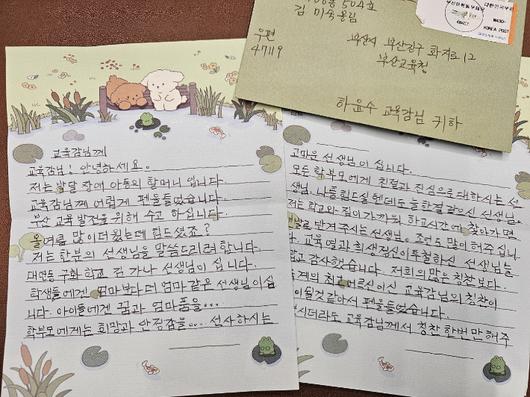 504호
김 미숙 올림
우편
47119
부산시 부산진구 화지로 12
부산교육청
하윤수 교육감님 귀하
대한민국 KOREA
교육감님께
교육감님! 안녕하세요.
저는 발달 장애 아동의 할머니 입니다.
교육감님께 어렵게 펜을 들었습니다.
부산 교육 발전을 위해 수고 하십니다.
올여름 많이 더웠는데 힘드셨죠?
저는 학부의 선생님을 말씀드리려 합니다.
대연동 구화 학교 김 가나 선생님이 십니다.
학생들에겐 엄마보다 더 엄마같은 선생님이십
니다. 아이들에게 꿈과 엄마품을...
학부모에게는 희망과 안정감을... 선사하시는
고마운 선생님이 십니다.
모든 학부모에게 친절과 진심으로 대하시는 선
생님, 나름 힘드실텐데도 늘 한결같으신 선생님.
저는 학교와 집이 가까워 하교시간에 찾아가면
반겨주시는 선생님. 조언도 많이 해주십
교육열과 희생정신이 투철하신 선생님을
감사했습니다. 저희의 많은 칭찬보다.
계의 최고 어르신이신 교육감님의 칭찬이
것같아서 펜을 들었습니다.
시더라도 교육감님께서 칭찬 한번만 해주